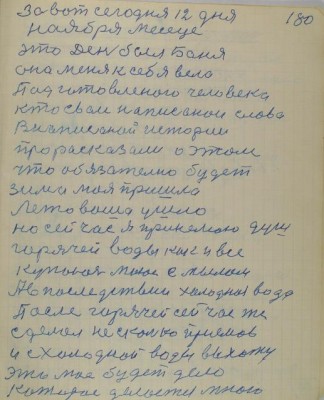 180
За вот сегодня 12 дня
ноября месеце
это День была Баня
она меня к себя вела
Подготовленого человека
кто свои написаной слова
В написаной истории
про расказали о этом
что обязателно будет
зима моя пришла
Лето ваша ушло
но сейчас я принемаю душ
горячей воды как и все
купаюся моюс с милом
Но последствии холодная вода
После горячей сейчас же
сделал несколко приёмов
и с холодной воды выхожу
это мое будет дело
Которое делается много